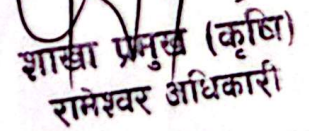 शाखा प्रमुख (कृषि)
रामेश्वर अधिकारी